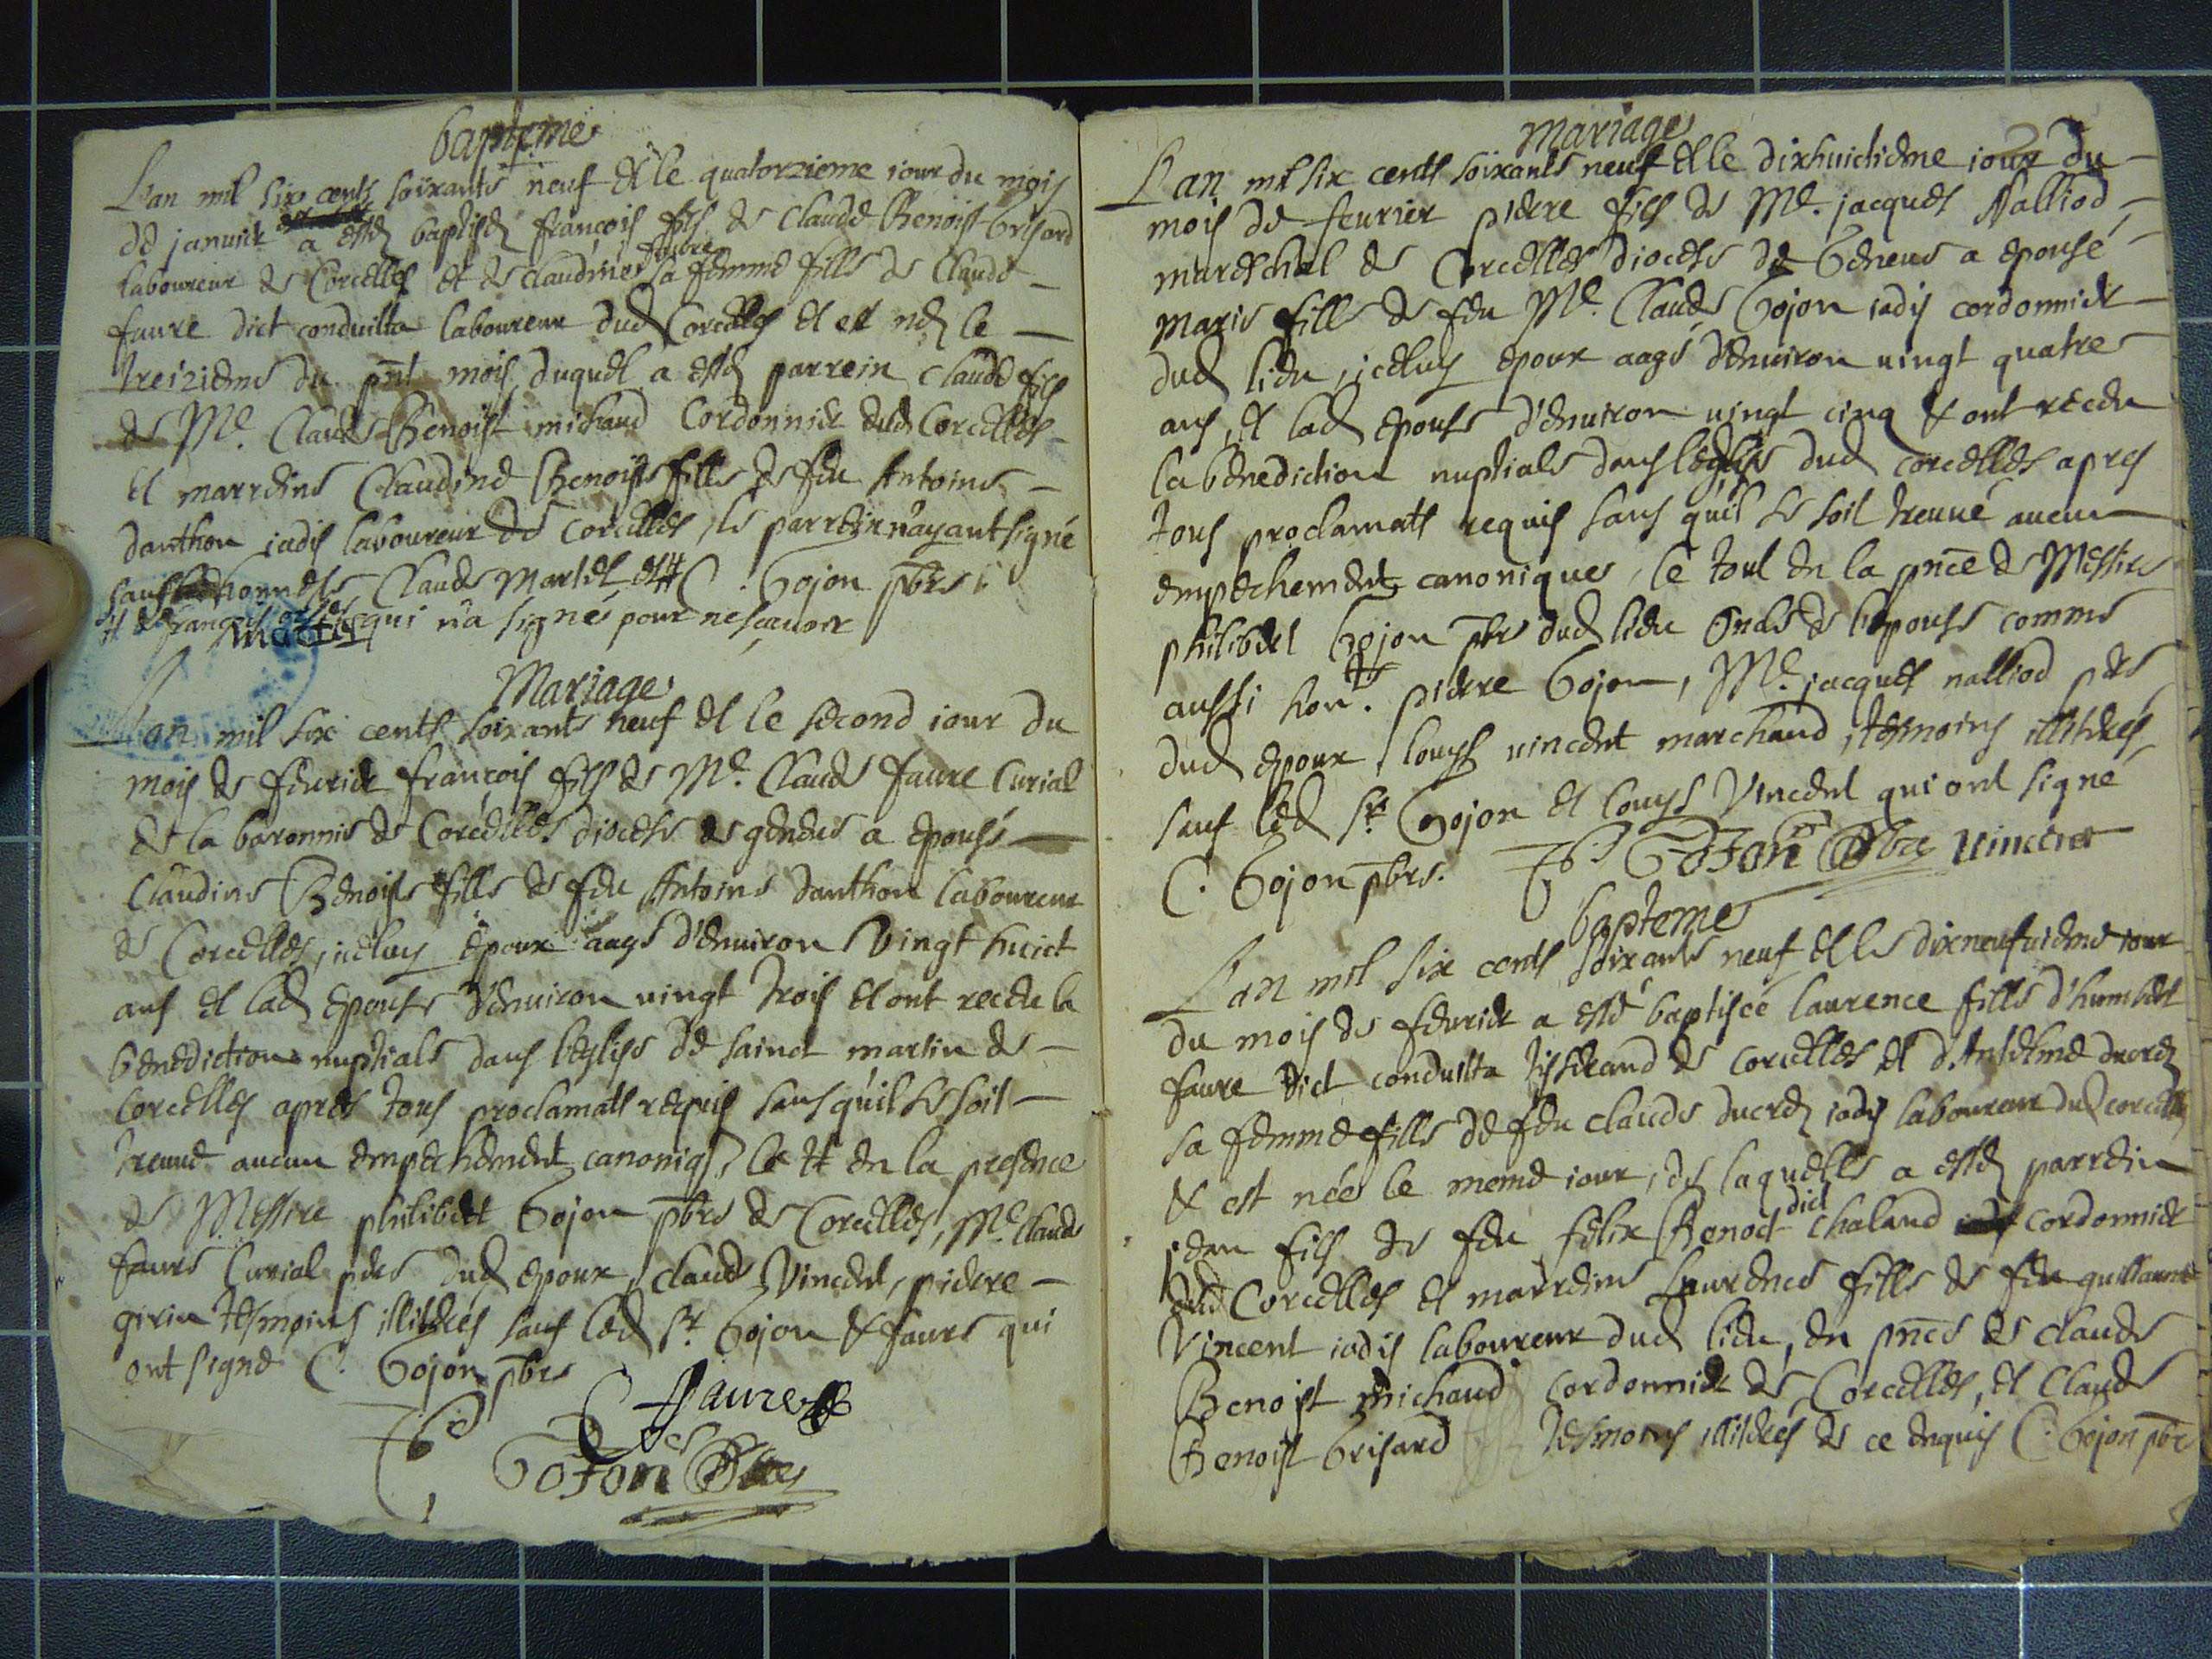 bapteme
L'an mil six cents soixante neuf et le quatorzieme iour du mois
de januier a esté baptisé françois fils de Claude Benoist Grisard
laboureur de Corcelles et de Claudine faure sa femme fille de Claude
faure dict conduilta laboureur dud Corcelles et est né le
treizieme du pnt mois, duquel a esté parrein Claude fils
de Me. Claude Benoist michaud Cordonnier dud Corcelles
et marreine Claudine Benoiste fille de feu Antoine
danthon iadis laboureur de Corcelles, le parrein n'ayant signé
sauf honneste Claude Martel et C. Gojon pbre
qui n'a signé pour ne sçauoir
Martel
Mariage
L'an mil six cents soixante neuf et le second iour du
mois de feurier françois fils de Me. Claude faure Curial
de la baronnie de Corcelles diocese de geneue a epousé
Claudine Benoiste fille de feu Antoine danthon laboureur
de Corcelles, iceluy epoux aagé d'enuiron Vingt huict
ans et lad epouse d'enuiron uingt trois et ont receu la
benediction nuptiale dans leglise de sainct martin de
Corcelles apres tous proclamats requis sans qu'il se soit
treuué aucun empechement canoniq, le tt en la presence
de Messire philibert Gojon pbre de Corcelles, Me. Claude
faure Curial pere dud epoux, claude Vincent, pierre
girin tesmoins illiterés sauf led sr. Gojon & faure qui
ont signé C. Gojon pbre
C faure
P Gojon Pbre
Mariage
L'an mil six cents soixante neuf et le dixhuictieme iour du
mois de feurier pierre fils de Me. jacques Nalliod
mareschal de Corcelles diocese de Geneue a epousé
Marie fille de feu Me. Claude Gojon iadis cordonnier
dud lieu, iceluy epoux aagé d'enuiron uingt quatre
ans, et lad epouse d'enuiron uingt cinq & ont receu
la benediction nuptiale dans leglise dud corcelles apres
tous proclamats requis sans qu'il se soit treuué aucun
empechement canonique, le tout en la pnce de Messire
philibert Gojon pbre dud lieu Oncle de lepouse comme
aussi hon.tes pierre Gojon, Me. jacques nalliod pere
dud epoux, louys uincent marchand, tesmoins illiterés
sauf led sr. Gojon et louys Vincent qui ont signé
C. Gojon pbre. P Gojon Pbre Vincent
bapteme
L'an mil six cents soixante neuf et le dixneufuieme iour
du mois de feurier a esté baptiscé laurence fille d'humbert
faure dict conduilta tisserand de corcelles et d'Antelme ducré
sa femme fille de feu claude ducré iadis laboureur dud corcelles
& est née le meme iour, de laquelle a esté parrein
jean fils de feu felix Benoct dict chaland cordonnier
dud Corcelles et marreine Laurence fille de feu guillaume
Vincent iadis laboureur dud lieu, en pnce de claude
Benoist michaud cordonnier de Corcelles, et Claude
Benoist Grisard tesmoins illiterés de ce enquis C. Gojon pbre